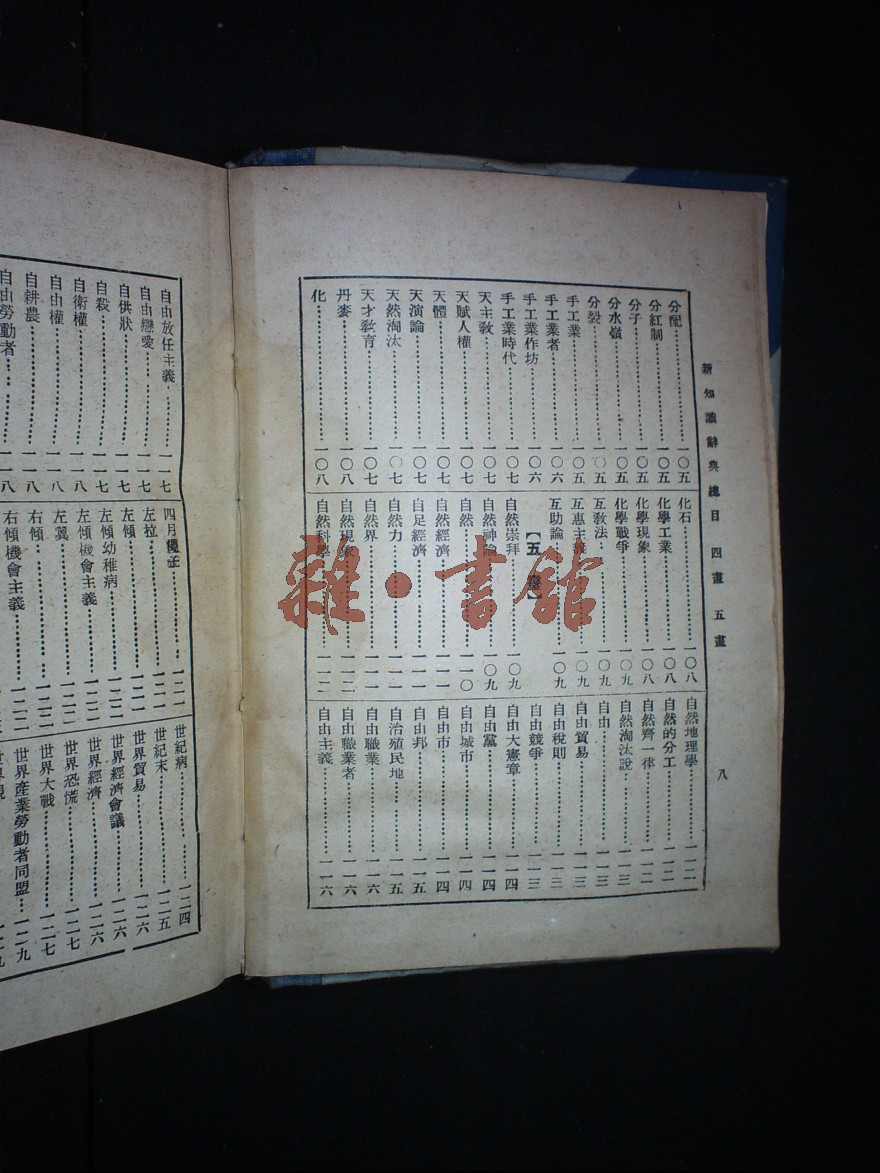 新知識辭典總目 四畫 五畫 八
分配…………一〇五
分紅制…………一〇五
分子…………一〇五
分水嶺…………一〇五
分裂…………一〇五
手工業…………一〇五
手工業者…………一〇六
手工業作坊…………一〇六
手工業時代…………一〇七
天主教…………一〇七
天賦人權…………一〇七
天體…………一〇七
天演論…………一〇七
天然淘汰…………一〇七
天才教育…………一〇七
丹麥…………一〇八
化…………一〇八
化石…………一〇八
化學工業…………一〇八
化學現象…………一〇八
化學戰爭…………一〇九
互教法…………一〇九
互惠主義…………一〇九
互助論…………一〇九
【五畫】
自然崇拜…………一〇九
自然神論…………一〇九
自然…………一一〇
自然經濟…………一一一
自足經濟…………一一一
自然力…………一一一
自然界…………一一一
自然現象…………一一二
自然科學…………一一二
自然地理學…………一一二
自然的分工…………一一二
自然齊一律…………一一二
自然淘汰說…………一一三
自由…………一一三
自由貿易…………一一三
自由稅則…………一一三
自由競爭…………一一三
自由大憲章…………一一四
自由黨…………一一四
自由城市…………一一四
自由市…………一一四
自由邦…………一一五
自治殖民地…………一一五
自由職業…………一一六
自由職業者…………一一六
自由主義…………一一六
自由放任主義…………一一七
自由戀愛…………一一七
自供狀…………一一七
自殺…………一一七
自衛權…………一一八
自由權…………一一八
自耕農…………一一八
自由勞動者…………一一八
四月提綱…………一二一
左拉…………一二一
左傾…………一二一
左傾幼稚病…………一二一
左傾機會主義…………一二一
左翼…………一二二
右傾…………一二二
右傾機會主義…………一二二
世紀病…………一二四
世紀末…………一二五
世界貿易…………一二六
世界經濟會議…………一二六
世界經濟…………一二六
世界恐慌…………一二七
世界大戰…………一二七
世界產業勞動者同盟…一二九
雜·書館